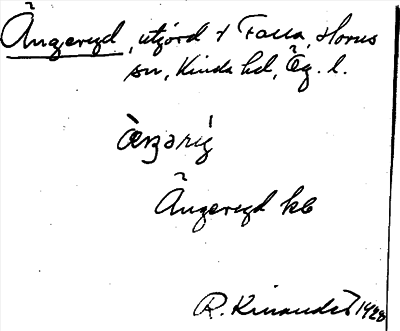 Ängeryd, utjord t Falla, Horns
sn, Kinda hd, Ög. l.
Ängeryd kb
R. Kinander 1928